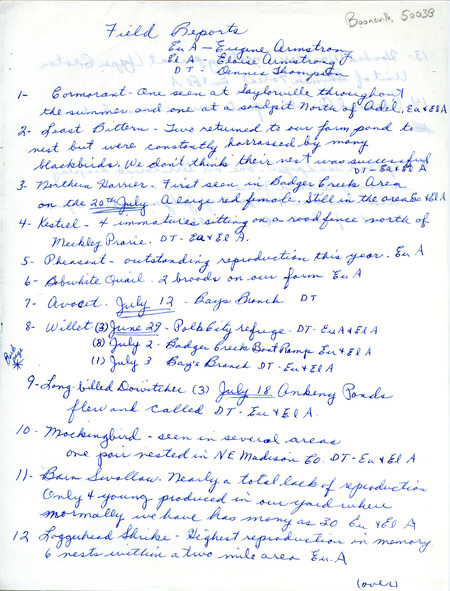 Booneville, 50038
Field Reports
Eu A - Eugene Armstrong
El A - Eloise Armstrong
DT - Dennis Thompson
1- Cormorant - One seen at Saylorville throughout
the summer and one at a sandpit North of Adel. Eu & El A
2- Least Bittern - Two returned to our farm pond to
nest but were constantly harrassed by many
blackbirds. We don't think their nest was successful
DT - Eu & El A
3- Northern Harrier - First seen in Badger Creek Area
on the 20th July. A large red female. Still in the area Eu & El A
4- Kestrel - 4 immatures sitting on a road fence north of
Meckley Prairie. DT - Eu & El A.
5- Pheasant - outstanding reproduction this year. Eu A
6- Bobwhite Quail. 2 broods on our farm Eu A
7- Avocet. July 12 - Bays Branch DT
8- Willet (3) June 29 - Polk City refuge DT - Eu A & El A
(8) July 2 - Badger Creek Boat Ramp Eu & El A
(11) July 3 Bay's Branch DT - Eu & El A
9- Long-billed Dowitcher (3) July 18 Ankeny Ponds
flew and called DT - Eu & El A.
10- Mockingbird - seen in several areas
one pair nested in NE Madison Co. DT - Eu & El A
11- Barn Swallow. Nearly a total lack of reproduction
Only 4 young produced in our yard where
normally we have has many as 30 Eu & El A
12 Loggerhead Shrike - Highest reproduction in memory
6 nests within a two mile area Eu. A
(over)